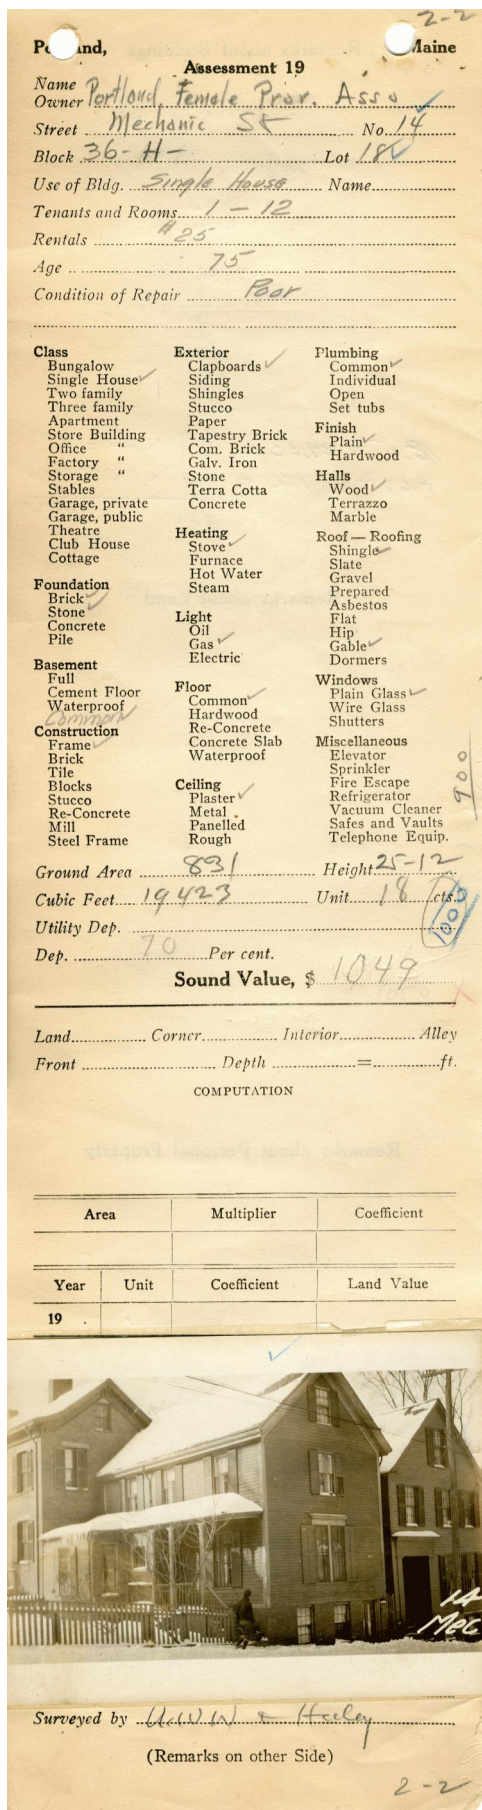 2-2
Po land, Maine
Assessment 19
Name
Owner Portland Female Prov. Asso
Street Mechanic St No. 14
Block 36-H- Lot 18
Use of Bldg. Single House Name
Tenants and Rooms 1 - 12
Rentals #25
Age 75
Condition of Repair Poor
Class
Bungalow
Single House ✓
Two family
Three family
Apartment
Store Building
Office "
Factory "
Storage "
Stables
Garage, private
Garage, public
Theatre
Club House
Cottage
Foundation
Brick ✓
Stone ✓
Concrete
Pile
Basement
Full
Cement Floor
Waterproof
Common
Construction
Frame ✓
Brick
Tile
Blocks
Stucco
Re-Concrete
Mill
Steel Frame
Exterior
Clapboards ✓
Siding
Shingles
Stucco
Paper
Tapestry Brick
Com. Brick
Galv. Iron
Stone
Terra Cotta
Concrete
Heating
Stove ✓
Furnace
Hot Water
Steam
Light
Oil
Gas ✓
Electric
Floor
Common ✓
Hardwood
Re-Concrete
Concrete Slab
Waterproof
Ceiling
Plaster ✓
Metal
Panelled
Rough
Plumbing
Common ✓
Individual
Open
Set tubs
Finish
Plain ✓
Hardwood
Halls
Wood ✓
Terrazzo
Marble
Roof — Roofing
Shingle ✓
Slate
Gravel
Prepared
Asbestos
Flat
Hip
Gable ✓
Dormers
Windows
Plain Glass ✓
Wire Glass
Shutters
Miscellaneous
Elevator
Sprinkler
Fire Escape
Refrigerator
Vacuum Cleaner
Safes and Vaults
Telephone Equip.
900
Ground Area 831 Height 25-12
Cubic Feet 19423 Unit 18 cts.
1000
Utility Dep.
Dep. 70 Per cent.
Sound Value, $ 1049
Land Corner Interior Alley
Front Depth = ft.
COMPUTATION
Area Multiplier Coefficient
Year Unit Coefficient Land Value
19
14
Mec
Surveyed by
(Remarks on other Side)
2-2